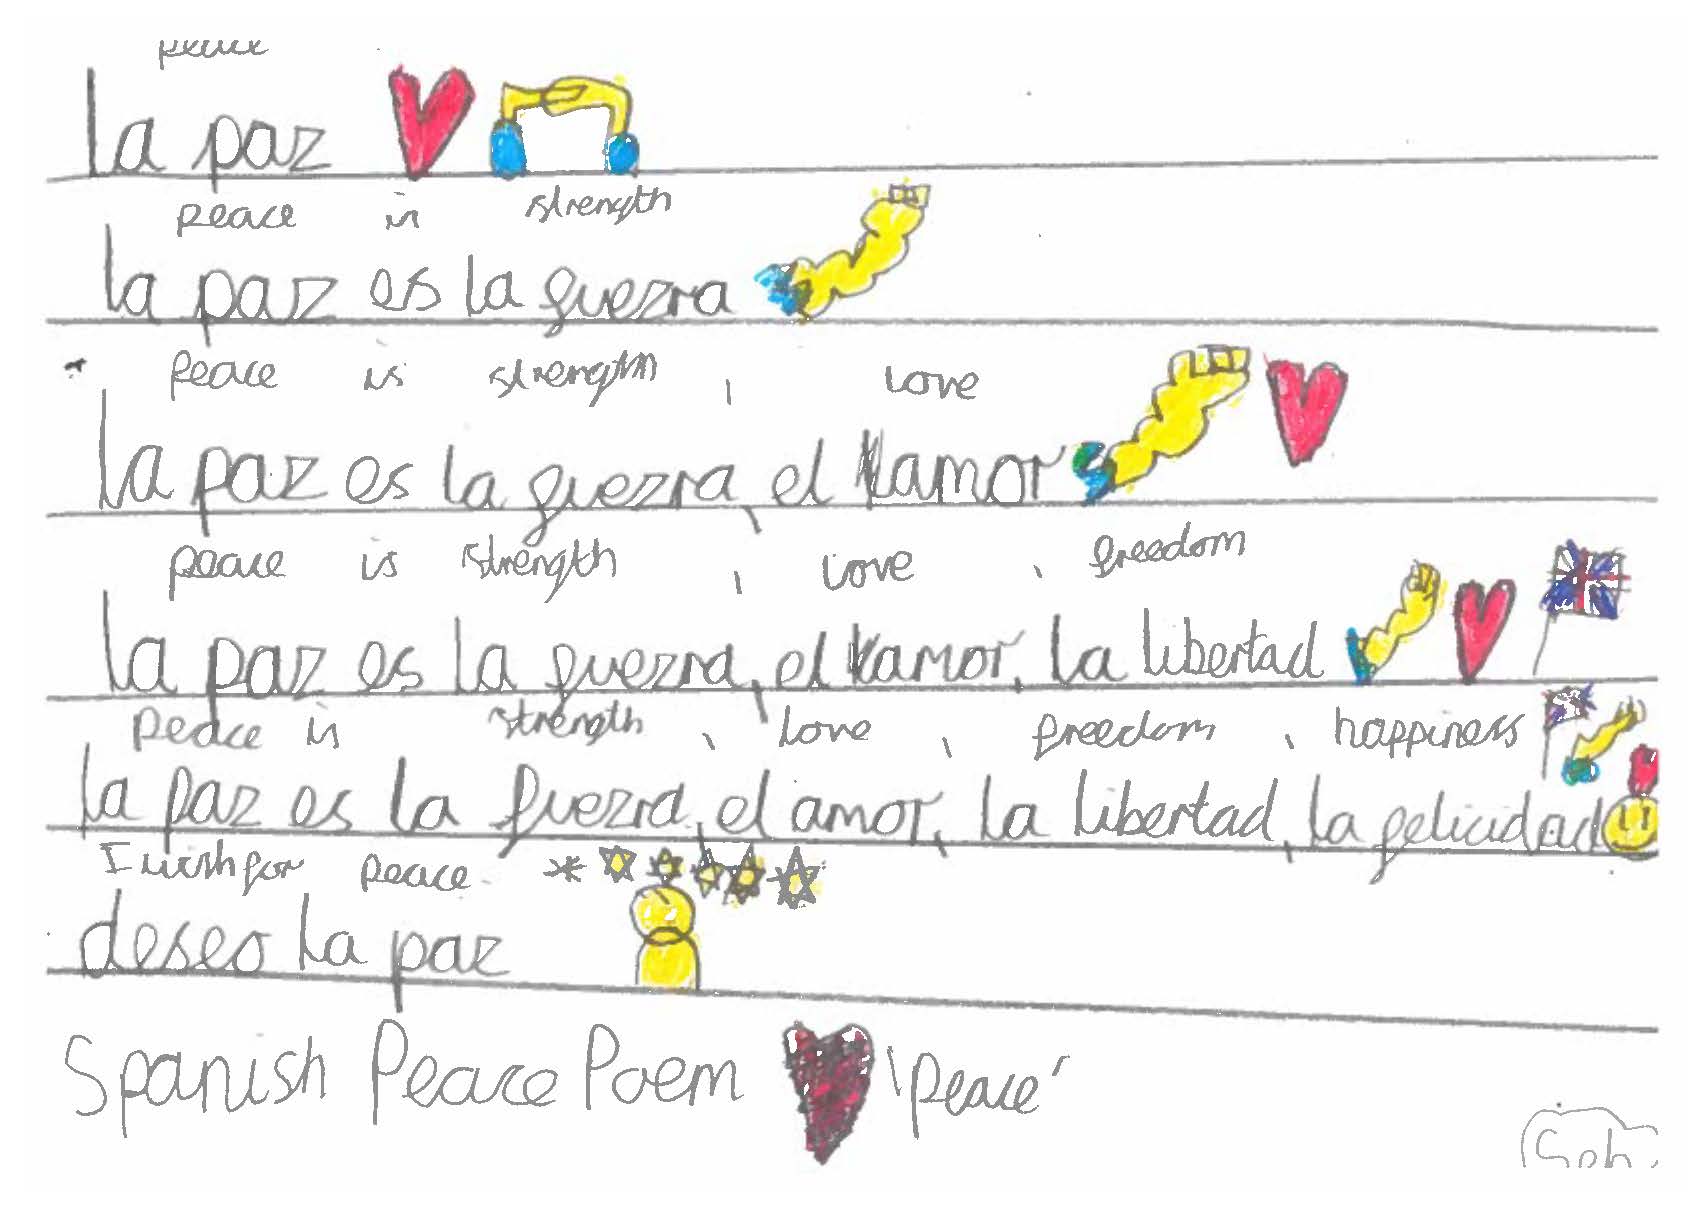 peace
la paz
peace is strength
la paz es la fuezra
peace is strength, love
la paz es la fuezra, el amor
peace is strength, love, freedom
la paz es la fuezra, el amor, la libertad
peace is strength, love, freedom, happiness
la paz es la fuezra, el amor, la libertad, la felicidad
I wish for peace
deseo la paz
Spanish Peace Poem 'Peace'